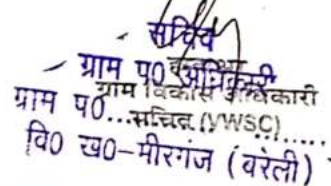 सचिव
ग्राम प0 अधिकारी
ग्राम विकास अधिकारी
ग्राम प0...सचिव (VWSC).....
वि0 ख0-मीरगंज (बरेली)